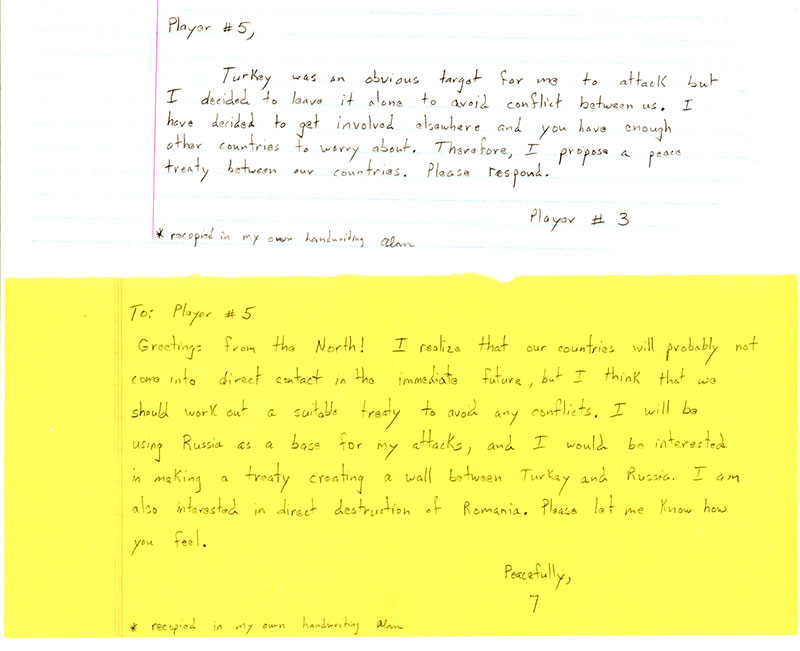 Player #5,
Turkey was an obvious target for me to attack but
I decided to leave it alone to avoid conflict between us. I
have decided to get involved elsewhere and you have enough
other countries to worry about. Therefore, I propose a peace
treaty between our countries. Please respond.
Player # 3
* recopied in my own handwriting Alan
To: Player #5
Greetings from the North! I realize that our countries will probably not
come into direct contact in the immediate future, but I think that we
should work out a suitable treaty to avoid any conflicts. I will be
using Russia as a base for my attacks, and I would be interested
in making a treaty creating a wall between Turkey and Russia. I am
also interested in direct destruction of Romania. Please let me know how
you feel.
Peacefully,
7
* recopied in my own handwriting Alan